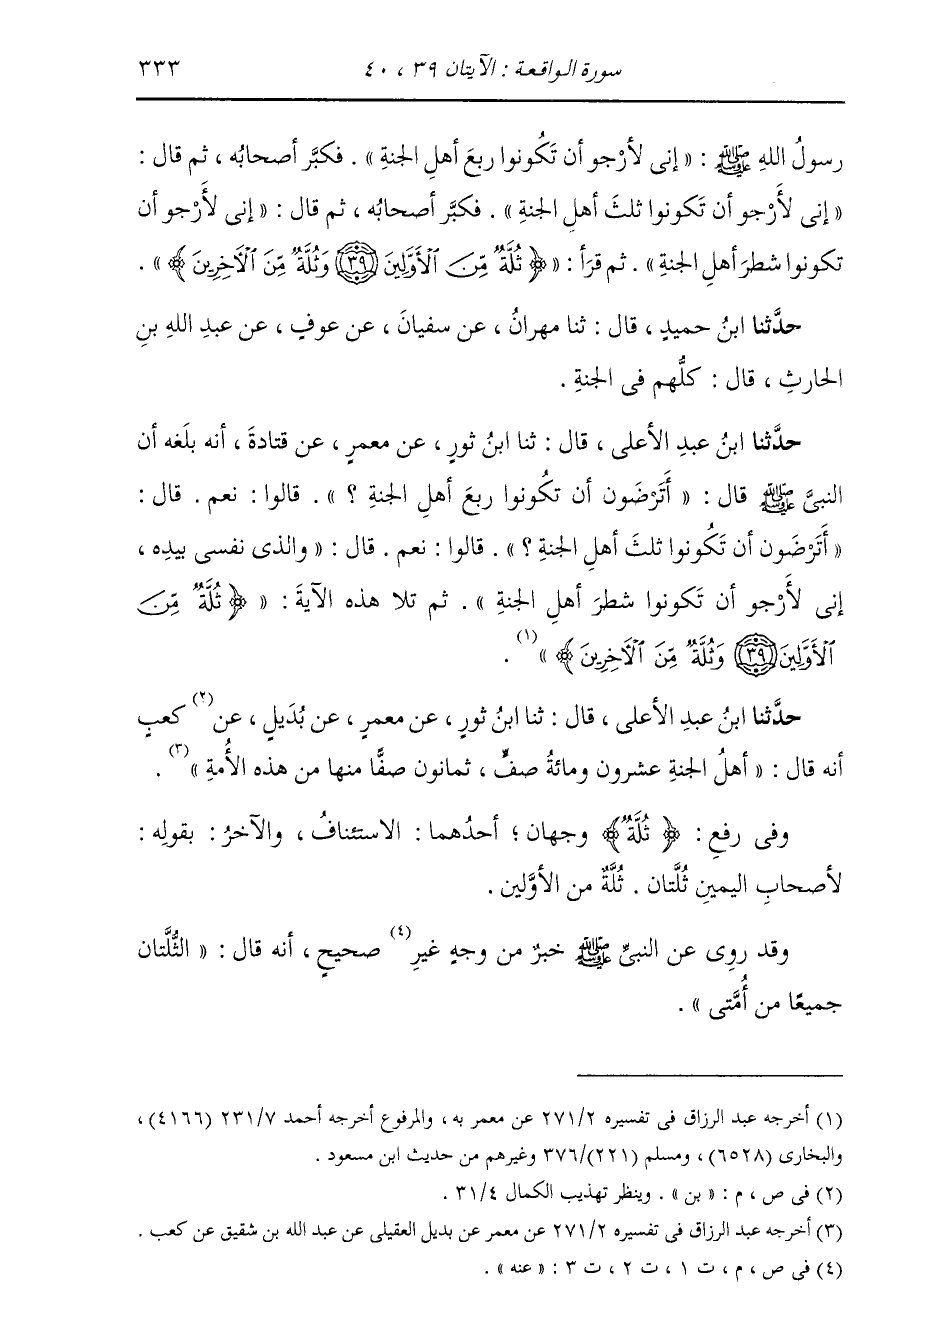 سورة الواقعة : الآيتان ٣٩ ، ٤٠ ٣٣٣
رسولُ اللهِ ﷺ : « إنى لأرْجو أن تَكُونوا ربعَ أهلِ الجنةِ » . فكبَّر أصحابُه ، ثم قال :
« إنى لَأَرْجو أن تَكونوا ثلثَ أهلِ الجنةِ » . فكبَّر أصحابُه ، ثم قال : « إنى لَأَرْجو أن
تكونوا شطرَ أهلِ الجنةِ » . ثم قرَأ : « ﴿ ثُلَّةٌ مِّنَ ٱلْأَوَّلِينَ ﴿٣٩﴾ وَثُلَّةٌ مِّنَ ٱلْآخِرِينَ ﴾ » .
حدَّثنا ابنُ حميدٍ ، قال : ثنا مهرانُ ، عن سفيانَ ، عن عوفٍ ، عن عبدِ اللهِ بنِ
الحارثِ ، قال : كلُّهم فى الجنةِ .
حدَّثنا ابنُ عبدِ الأعلى ، قال : ثنا ابنُ ثورٍ ، عن معمرٍ ، عن قتادةَ ، أنه بلَغه أن
النبىَّ ﷺ قال : « أَتَرْضَون أن تكُونوا ربعَ أهلِ الجنةِ ؟ » . قالوا : نعم . قال :
« أَتَرْضَون أن تَكُونوا ثلثَ أهلِ الجنةِ ؟ » . قالوا : نعم . قال : « والذى نفسى بيدِه ،
إنى لَأَرجو أن تَكونوا شطرَ أهلِ الجنةِ » . ثم تلا هذه الآيةَ : « ﴿ ثُلَّةٌ مِّنَ
ٱلْأَوَّلِينَ ﴿٣٩﴾ وَثُلَّةٌ مِّنَ ٱلْآخِرِينَ ﴾ »(١) .
حدَّثنا ابنُ عبدِ الأعلى ، قال : ثنا ابنُ ثورٍ ، عن معمرٍ ، عن بُدَيلٍ ، عن(٢) كعبٍ
أنه قال : « أهلُ الجنةِ عشرون ومائةُ صفٍّ ، ثمانون صفًّا منها من هذه الأُمةِ »(٣) .
وفى رفعِ : ﴿ ثُلَّةٌ ﴾ وجهان ؛ أحدُهما : الاستئنافُ ، والآخرُ : بقولِه :
لأصحابِ اليمينِ ثُلَّتان . ثُلَّةٌ من الأوَّلين .
وقد روِى عن النبىِّ ﷺ خبرٌ من وجهٍ غيرِ(٤) صحيحٍ ، أنه قال : « الثُّلَّتان
جميعًا من أُمَّتى » .
(١) أخرجه عبد الرزاق فى تفسيره ٢٧١/٢ عن معمر به ، والمرفوع أخرجه أحمد ٢٣١/٧ (٤١٦٦) ،
والبخارى (٦٥٢٨) ، ومسلم (٣٧٦/(٢٢١ وغيرهم من حديث ابن مسعود .
(٢) فى ص ، م : « بن » . وينظر تهذيب الكمال ٣١/٤ .
(٣) أخرجه عبد الرزاق فى تفسيره ٢٧١/٢ عن معمر عن بديل العقيلى عن عبد الله بن شقيق عن كعب .
(٤) فى ص ، م ، ت ١ ، ت ٢ ، ت ٣ : « عنه » .